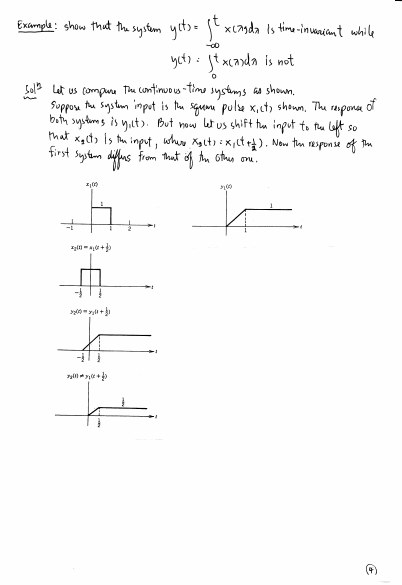 Example: show that the system y(t) = ∫_{-∞}^{t} x(λ)dλ Is time-invariant while
y(t) = ∫_{0}^{t} x(λ)dλ is not
Solⁿ Let us compare the continuous-time systems as shown.
Suppose the system input is the square pulse x₁(t) shown. The response of
both systems is y₁(t). But now let us shift the input to the left so
that x₂(t) is the input, where x₂(t) = x₁(t+½). Now the response of the
first system differs from that of the other one.
x₁(t) y₁(t)
1 1
-1 1 2 t 1 t
x₂(t) = x₁(t + ½)
-½ ½ t
y₂(t) = y₁(t + ½)
-½ ½ t
y₂(t) ≠ y₁(t + ½)
½
½ t
4